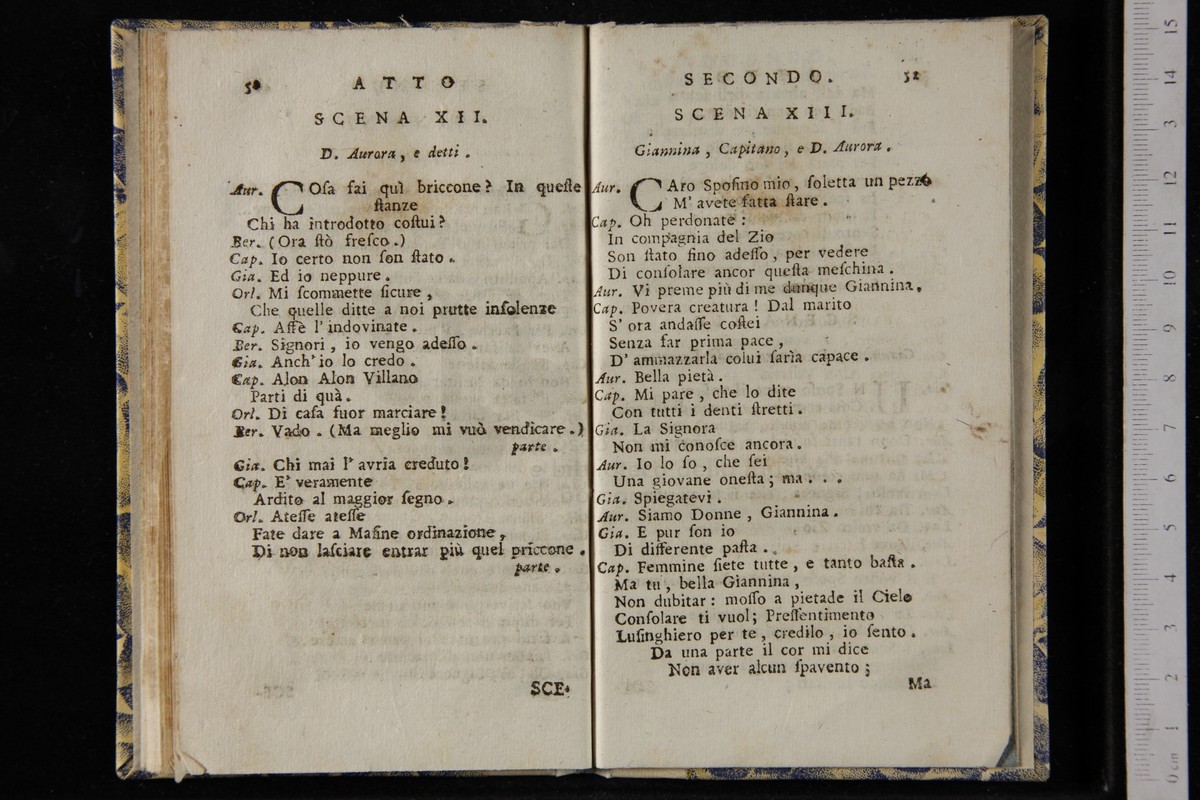 50 ATTO
SCENA XII.
D. Aurora, e detti.
Aur. COſa fai quì briccone? In queſte
ſtanze
Chi ha introdotto coſtui?
Ber. (Ora ſtò freſco.)
Cap. Io certo non ſon ſtato.
Gia. Ed io neppure.
Orl. Mi ſcommette ſicure,
Che quelle ditte a noi prutte inſolenze
Cap. Affè l'indovinate.
Ber. Signori, io vengo adeſſo.
Gia. Anch'io lo credo.
Cap. Alon Alon Villano
Parti di quà.
Orl. Di caſa fuor marciare!
Ber. Vado. (Ma meglio mi vuò vendicare.)
parte.
Gia. Chi mai l'avria creduto!
Cap. E' veramente
Ardito al maggior ſegno.
Orl. Ateſſe ateſſe
Fate dare a Maſine ordinazione,
Di non laſciare entrar più quel priccone.
parte.
SCE-
SECONDO. 51
SCENA XIII.
Giannina, Capitano, e D. Aurora.
Aur. CAro Spoſino mio, ſoletta un pezzo
M'avete fatta ſtare.
Cap. Oh perdonate:
In compagnia del Zio
Son ſtato fino adeſſo, per vedere
Di conſolare ancor queſta meſchina.
Aur. Vi preme più di me dunque Giannina,
Cap. Povera creatura! Dal marito
S'ora andaſſe coſtei
Senza far prima pace,
D'ammazzarla colui farìa capace.
Aur. Bella pietà.
Cap. Mi pare, che lo dite
Con tutti i denti ſtretti.
Gia. La Signora
Non mi conoſce ancora.
Aur. Io lo ſo, che ſei
Una giovane oneſta; ma...
Gia. Spiegatevi.
Aur. Siamo Donne, Giannina.
Gia. E pur ſon io
Di differente paſta.
Cap. Femmine ſiete tutte, e tanto baſta.
Ma tu, bella Giannina,
Non dubitar: moſſo a pietade il Cielo
Conſolare ti vuol; Preſſentimento
Luſinghiero per te, credilo, io ſento.
Da una parte il cor mi dice
Non aver alcun ſpavento;
Ma